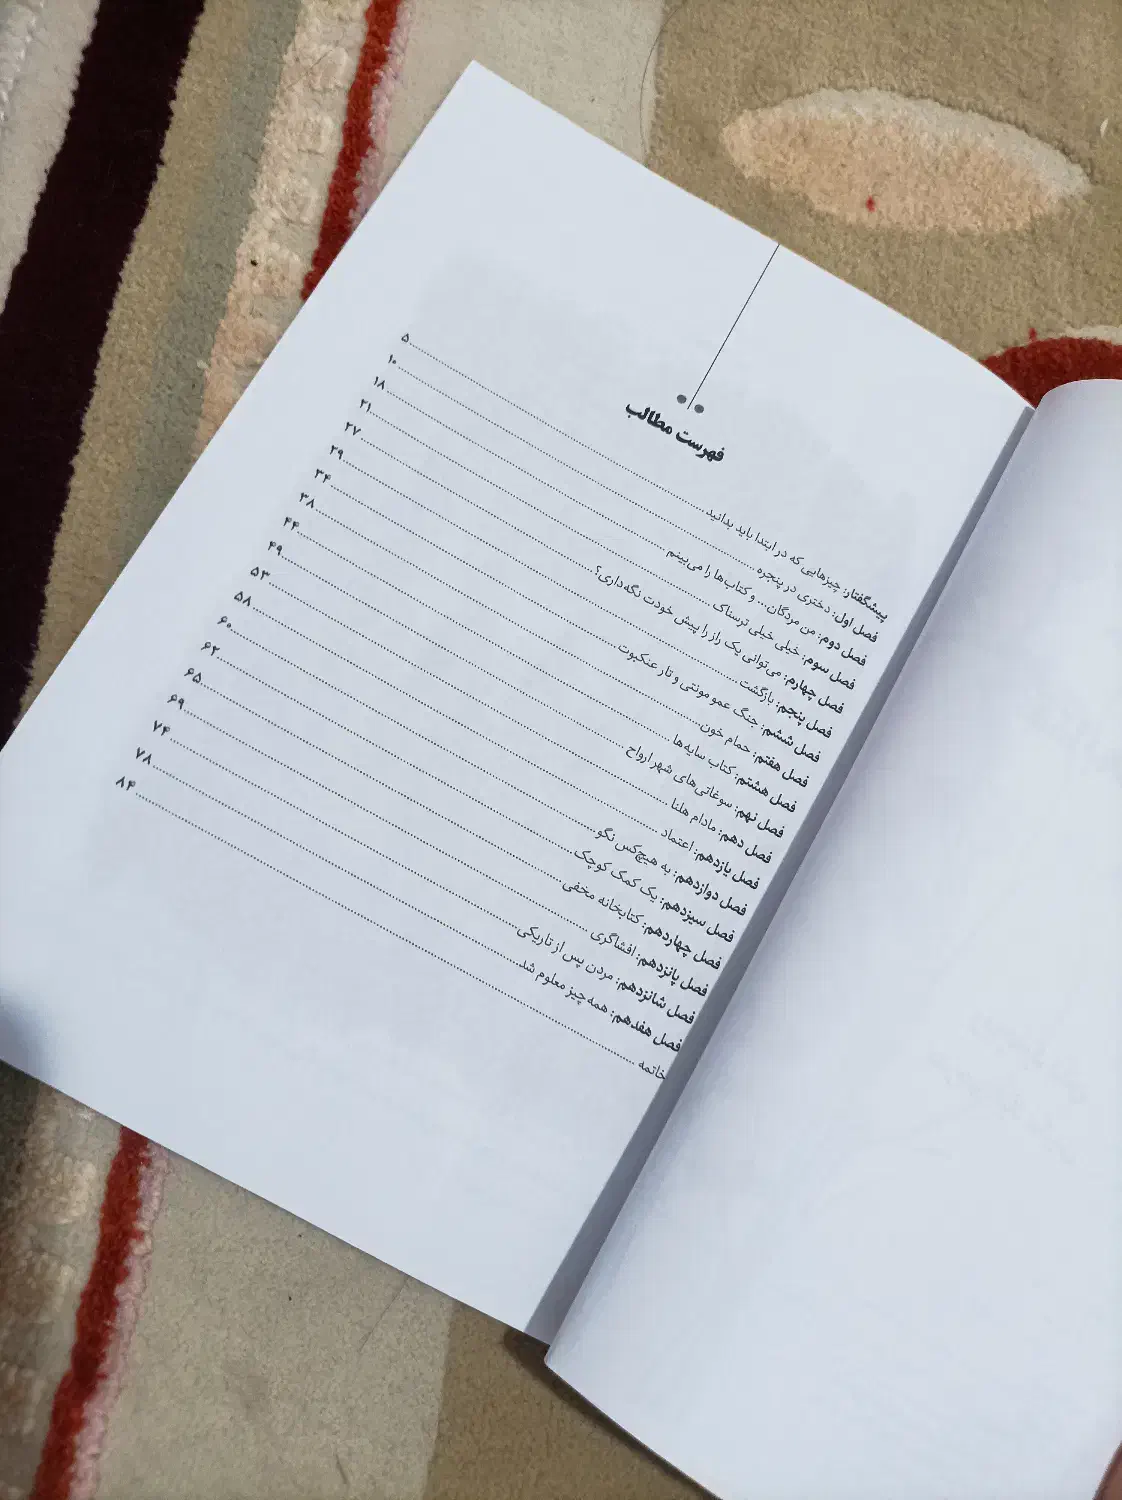 فهرست مطالب
پیشگفتار: چیزهایی که در ابتدا باید بدانید ۵
فصل اول: دختری در پنجره ۱۰
فصل دوم: من مردگان... و کتاب‌ها را می‌بینم ۱۸
فصل سوم: خیلی خیلی ترسناک ۲۱
فصل چهارم: می‌توانی یک راز را پیش خودت نگه‌داری؟ ۲۷
فصل پنجم: بازگشت ۲۹
فصل ششم: جنگ عمو مونتی و تار عنکبوت ۳۴
فصل هفتم: حمام خون ۳۸
فصل هشتم: کتاب سایه‌ها ۴۴
فصل نهم: سوغاتی‌های شهر ارواح ۴۹
فصل دهم: مادام هلنا ۵۳
فصل یازدهم: اعتماد ۵۸
فصل دوازدهم: به هیچ‌کس نگو ۶۰
فصل سیزدهم: یک کمک کوچک ۶۲
فصل چهاردهم: کتابخانه مخفی ۶۵
فصل پانزدهم: افشاگری ۶۹
فصل شانزدهم: مردن پس از تاریکی ۷۴
فصل هفدهم: همه چیز معلوم شد ۷۸
خاتمه ۸۴